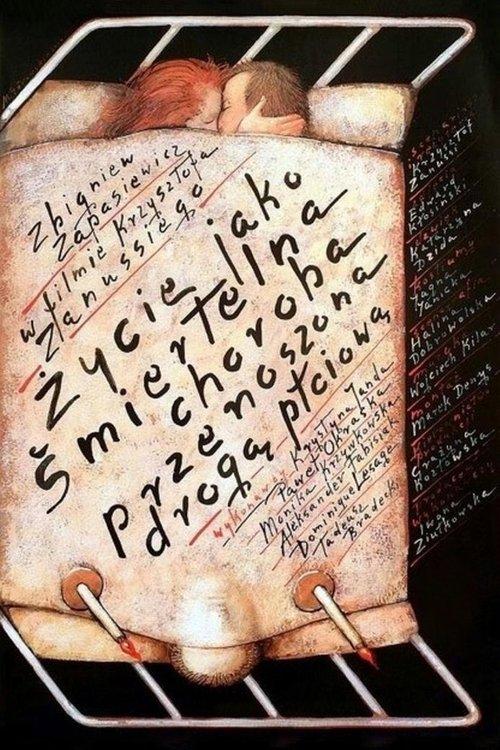 Zbigniew
Zapasiewicz
w filmie Krzysztofa
Zanussiego
Życie jako
śmiertelna
choroba
przenoszona
drogą płciową
wykonawcy Krystyna Janda
Paweł Okraska
Monika Krzywkowska
Aleksander Fabisiak
Dominique Lesage
Tadeusz
Bradecki
Krzysztof
Zanussi
Edward
Kłosiński
Dziduszyna
Jagna
Janicka
Halina
Dobrowolska
Wojciech Kilar
Marek Denys
Grażyna
Kozłowska
Iwona
Ziułkowska